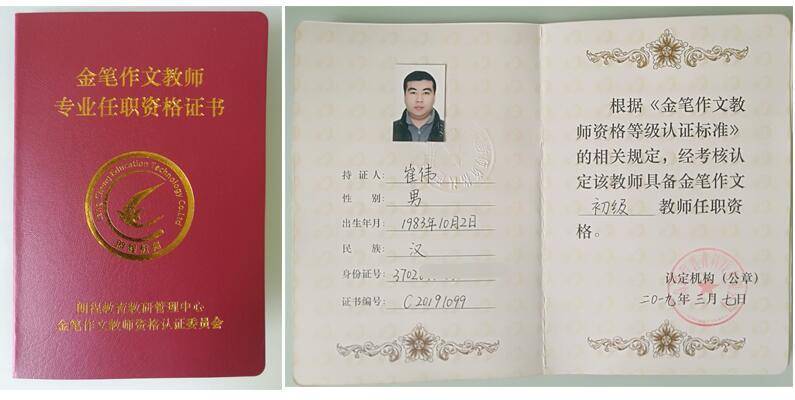 金笔作文教师
专业任职资格证书
Education Technology Co.Ltd
朗程教育教研管理中心
金笔作文教师资格认证委员会
持证人：崔伟
性别：男
出生年月：1983年10月2日
民族：汉
身份证号：3702.......
证书编号：C20191099
根据《金笔作文教
师资格等级认证标准》
的相关规定，经考核认
定该教师具备金笔作文
初级 教师任职资
格。
认定机构（公章）
二〇一九年三月七日